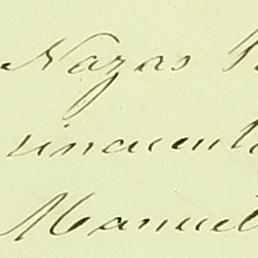 Nazas
cincuenta
Manuel